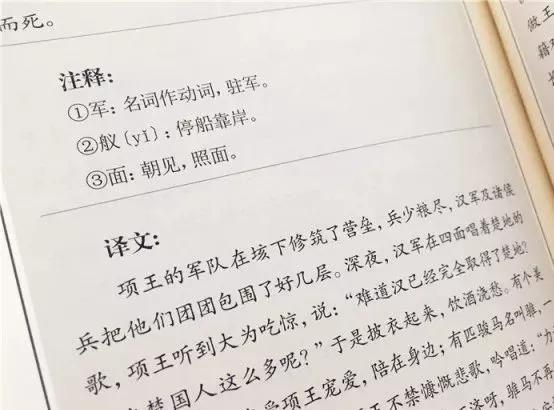 而死。
注释：
①军：名词作动词，驻军。
②舣(yǐ)：停船靠岸。
③面：朝见，照面。
译文：
项王的军队在垓下修筑了营垒，兵少粮尽，汉军及诸侯
兵把他们团团包围了好几层。深夜，汉军在四面唱着楚地的
歌，项王听到大为吃惊，说：“难道汉已经完全取得了楚地？
楚国人这么多呢？”于是披衣起来，饮酒浇愁。有个美
项王宠爱，陪在身边；有匹骏马名叫骓，一
王不禁慷慨悲歌，吟唱道：“力
济呀，骓马不再
做王
籍